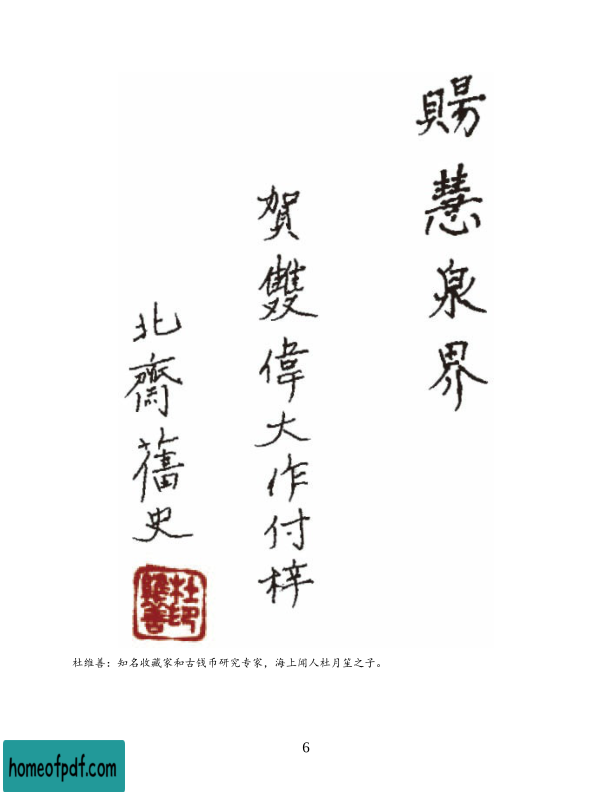 賜慧泉界
賀雙偉大作付梓
北齋舊史
杜印維善
杜维善：知名收藏家和古钱币研究专家，海上闻人杜月笙之子。
6
homeofpdf.com